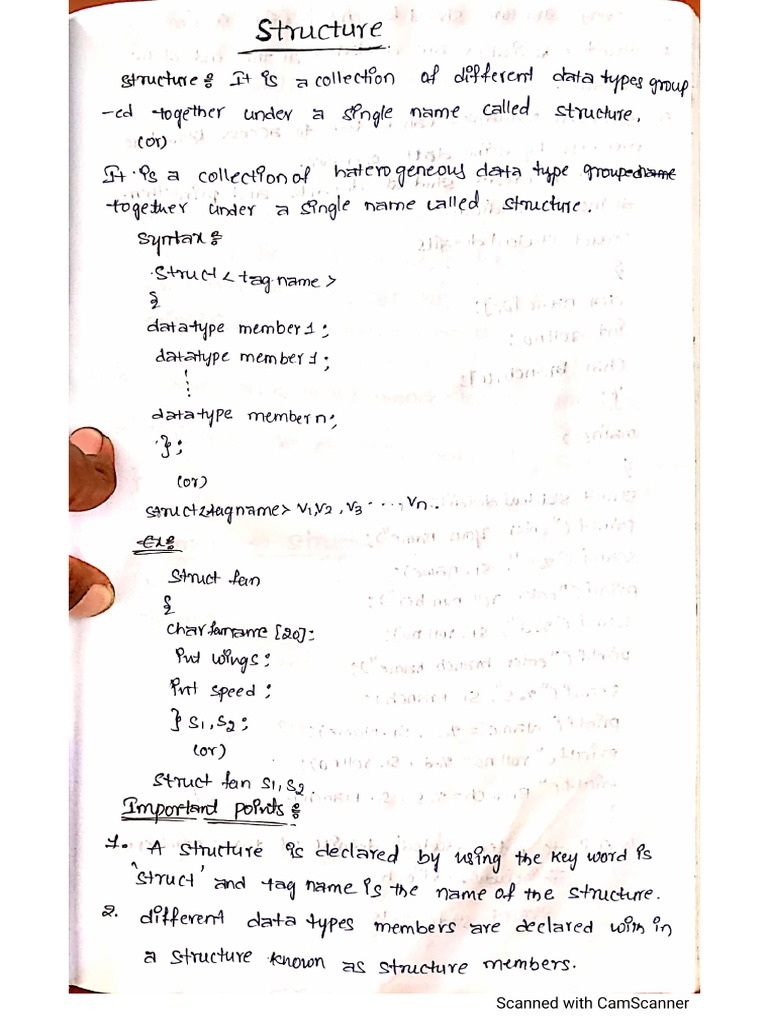 Structure
Structure: It is a collection of different data types group
-ed together under a single name called structure.
(or)
It is a collection of haterogeneous data type grouped name
together under a single name called structure.
Syntax:
Struct < tag name >
{
datatype member1;
datatype member1;
⋮
datatype member n;
};
(or)
struct<tagname> V1,V2, V3 ...., Vn.
Ex:
Struct fan
{
char fanname [20];
int wings;
int speed;
} S1, S2;
(or)
Struct fan S1, S2.
Important points:
1. A structure is declared by using the key word is
'struct' and tag name is the name of the structure.
2. different data types members are declared with in
a structure known as structure members.
Scanned with CamScanner